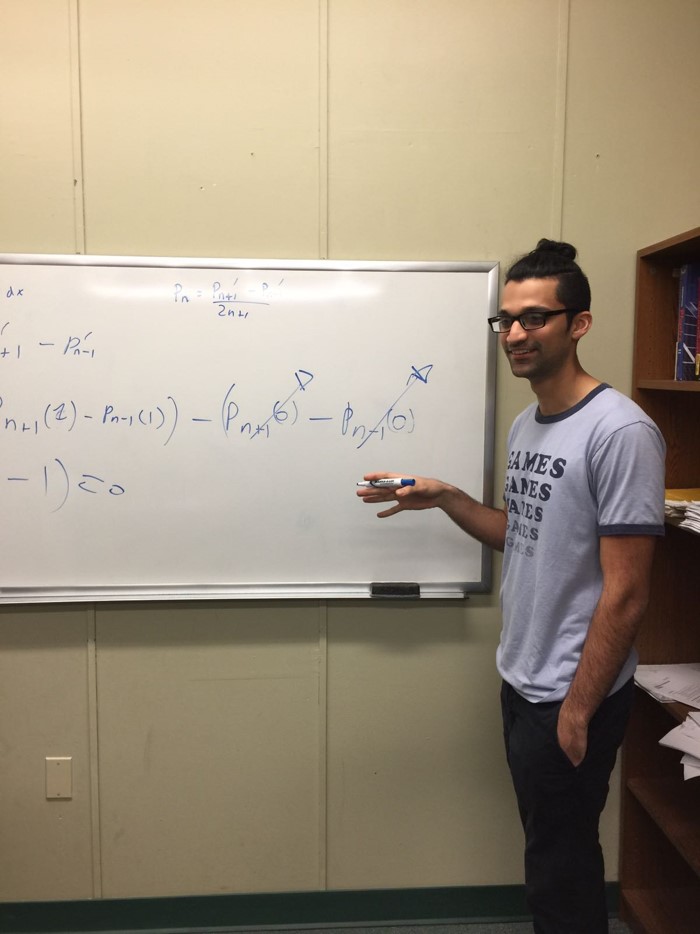 dx
Pₙ = Pₙ₊₁′ - P′
2n+1
+1′ - Pₙ₋₁′
Pₙ₊₁(1) - Pₙ₋₁(1)) - (Pₙ₊₁(0) - Pₙ₋₁(0)
- 1) = 0
GAMES
GAMES
GAMES
GAMES
GAMES